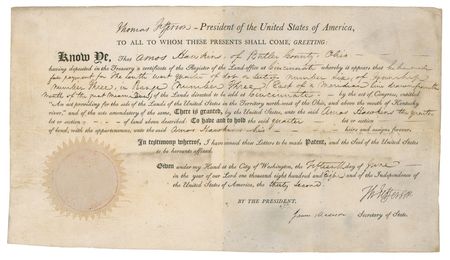 Thomas Jefferson, President of the United States of America,
TO ALL TO WHOM THESE PRESENTS SHALL COME, GREETING:
Know Ye, That Amos Hawkins, of Butler County, Ohio
having deposited in the Treasury a certificate of the Register of the Land-office at Cincinnati whereby it appears that he has made
full payment for the south west quarter of lot or section number six of township
number three, in Range number three, East of a meridian line drawn from the
Mouth of the great Miami of the Lands directed to be sold at Cincinnati by the act of Congress, entitled
"An act providing for the sale of the Lands of the United States in the Territory north-west of the Ohio, and above the mouth of Kentucky
river," and of the acts amendatory of the same, There is granted, by the United States, unto the said Amos Hawkins the quarter
lot or section of land above described. To have and to hold the said quarter lot or section
of land, with the appurtenances, unto the said Amos Hawkins his heirs and assigns forever.
In testimony whereof, I have caused these Letters to be made Patent, and the Seal of the United States
to be hereunto affixed.
Given under my Hand at the City of Washington, the fifteenth day of June
in the year of our Lord one thousand eight hundred and Eight and of the Independence of
the United States of America, the thirty second.
Th: Jefferson
BY THE PRESIDENT,
James Madison Secretary of State.